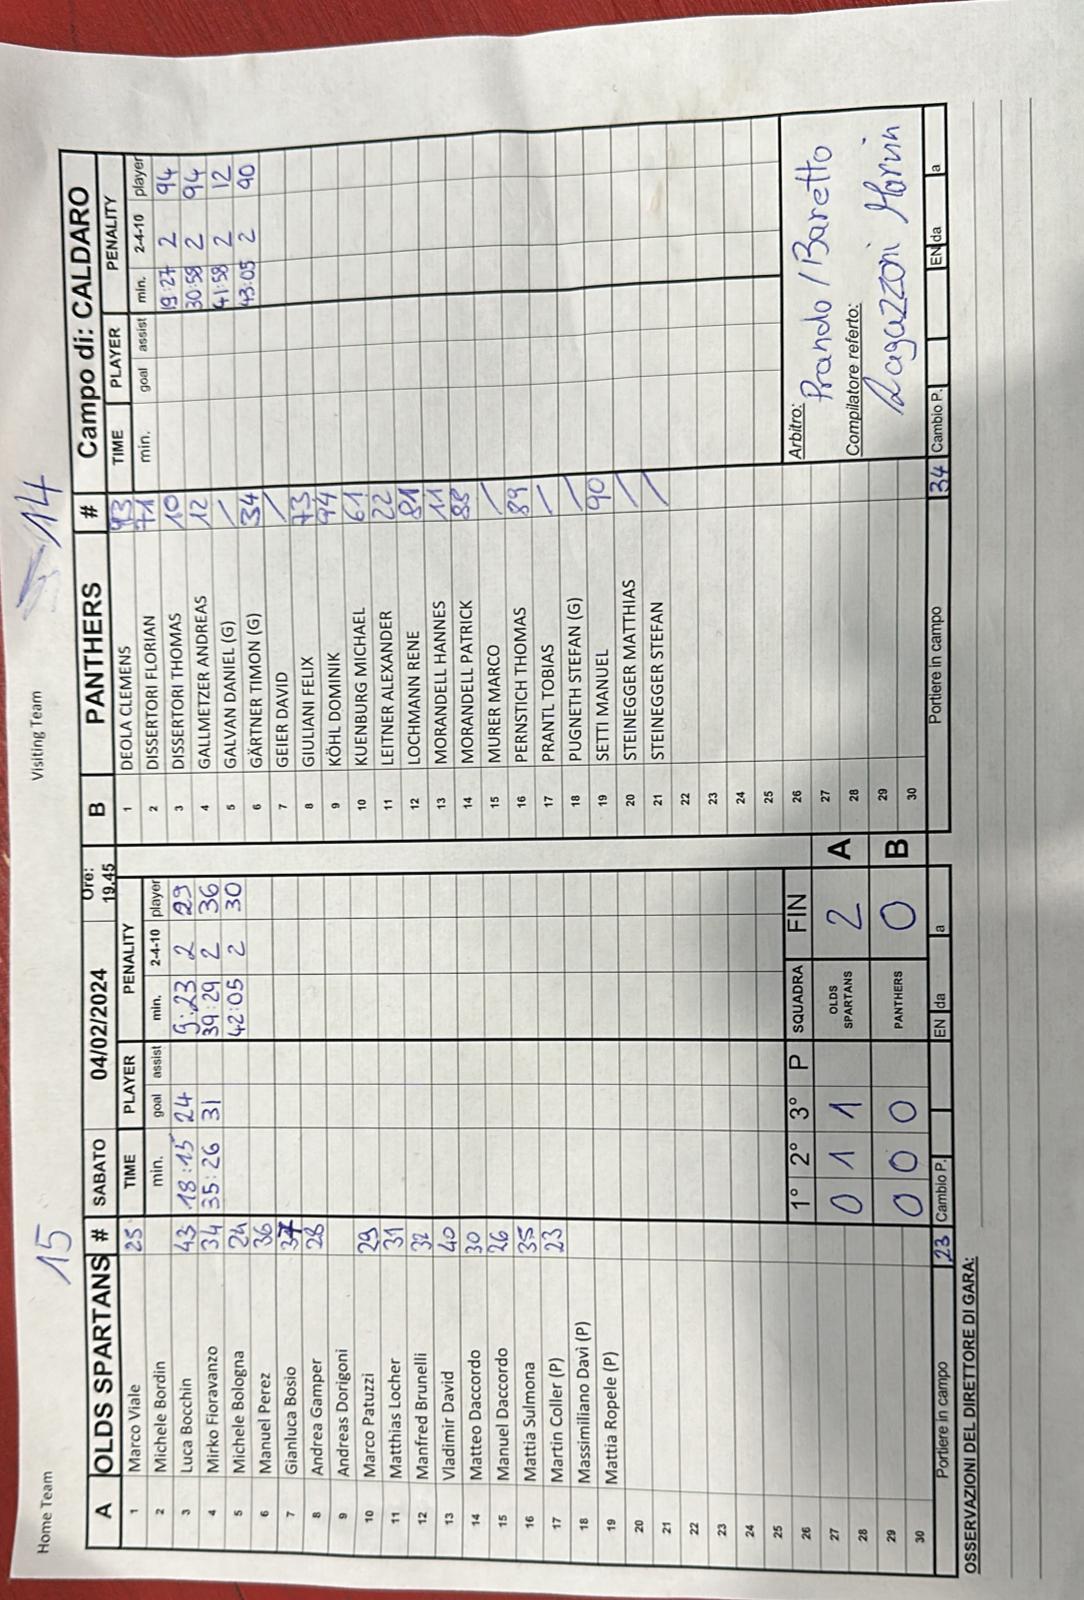 Home Team 15 Visiting Team 14
A OLDS SPARTANS # SABATO 04/02/2024 Ore: 19.45 B PANTHERS # Campo di: CALDARO
TIME PLAYER PENALITY TIME PLAYER PENALITY
min. goal assist min. 2-4-10 player min. goal assist min. 2-4-10 player
1 Marco Viale 25 1 DEOLA CLEMENS 93
2 Michele Bordin 2 DISSERTORI FLORIAN 71
3 Luca Bocchin 43 18:15 24 9:23 2 29 3 DISSERTORI THOMAS 10 19:27 2 94
4 Mirko Fioravanzo 34 35:26 31 39:29 2 36 4 GALLMETZER ANDREAS 12 30:58 2 94
5 Michele Bologna 24 42:05 2 30 5 GALVAN DANIEL (G) / 41:58 2 12
6 Manuel Perez 36 6 GÄRTNER TIMON (G) 34 43:05 2 90
7 Gianluca Bosio 37 7 GEIER DAVID /
8 Andrea Gamper 28 8 GIULIANI FELIX 73
9 Andreas Dorigoni 9 KÖHL DOMINIK 94
10 Marco Patuzzi 29 10 KUENBURG MICHAEL 61
11 Matthias Locher 31 11 LEITNER ALEXANDER 22
12 Manfred Brunelli 32 12 LOCHMANN RENE 81
13 Vladimir David 40 13 MORANDELL HANNES 11
14 Matteo Daccordo 30 14 MORANDELL PATRICK 88
15 Manuel Daccordo 26 15 MURER MARCO /
16 Mattia Sulmona 35 16 PERNSTICH THOMAS 89
17 Martin Coller (P) 23 17 PRANTL TOBIAS /
18 Massimiliano Davì (P) 18 PUGNETH STEFAN (G) /
19 Mattia Ropele (P) 19 SETTI MANUEL 90
20 20 STEINEGGER MATTHIAS /
21 21 STEINEGGER STEFAN /
22 22
23 23
24 24
25 25
26 1° 2° 3° P SQUADRA FIN 26 Arbitro:
27 0 1 1 OLDS SPARTANS 2 A 27 Prando / Baretto
28 28 Compilatore referto:
29 0 0 0 PANTHERS 0 B 29 Ragazzoni Marvin
30 30
Portiere in campo 23 Cambio P. EN da a Portiere in campo 34 Cambio P. EN da a
OSSERVAZIONI DEL DIRETTORE DI GARA: